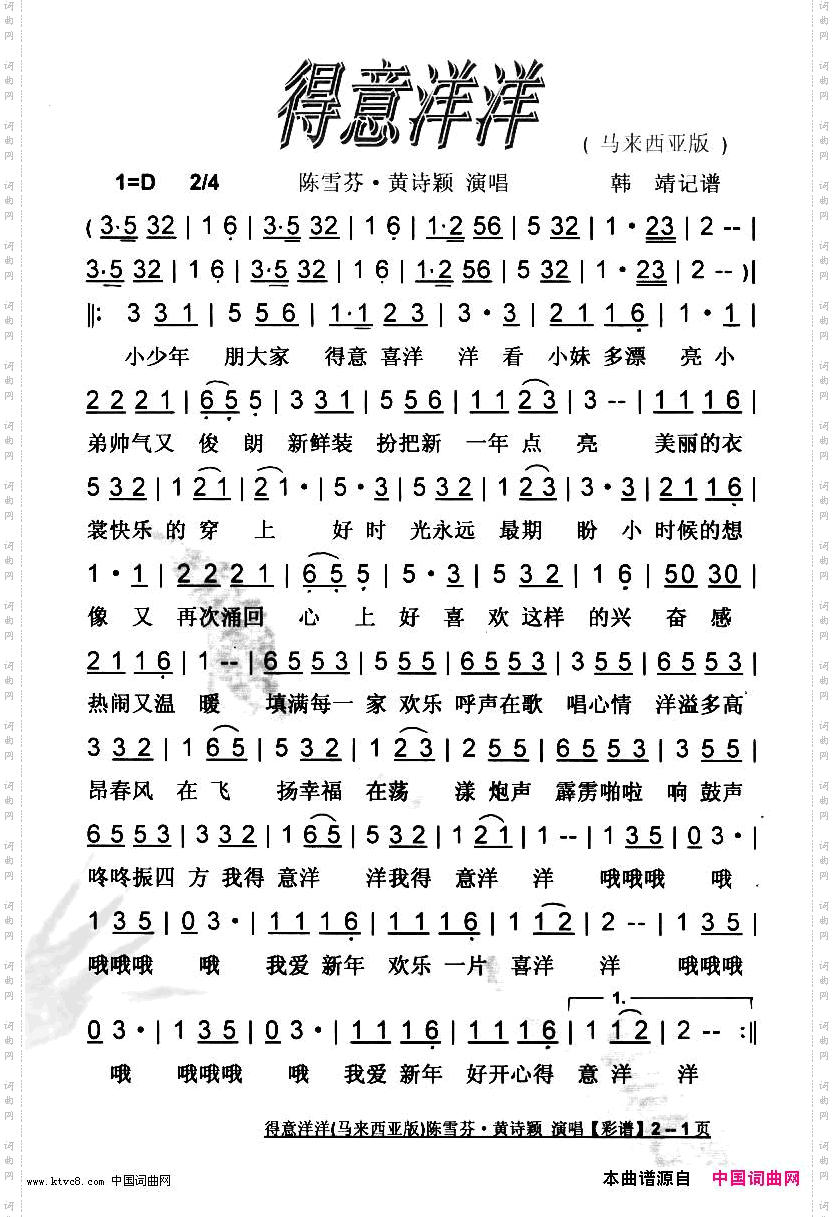 得意洋洋
( 马来西亚版 )
1=D 2/4 陈雪芬·黄诗颖 演唱 韩 靖记谱
( 3·5 32 | 1 6 | 3·5 32 | 1 6 | 1·2 56 | 5 32 | 1 · 23 | 2 -- |
3·5 32 | 1 6 | 3·5 32 | 1 6 | 1·2 56 | 5 32 | 1 · 23 | 2 -- )|
‖: 3 3 1 | 5 5 6 | 1·1 2 3 | 3 · 3 | 2 1 1 6 | 1 · 1 |
小少年 朋大家 得意 喜洋 洋 看 小妹 多漂 亮 小
2 2 2 1 | 6 5 5 | 3 3 1 | 5 5 6 | 1 1 2 3 | 3 -- | 1 1 1 6 |
弟帅气又 俊 朗 新鲜装 扮把新 一年 点 亮 美丽的衣
5 3 2 | 1 2 1 | 2 1 · | 5 · 3 | 5 3 2 | 1 2 3 | 3 · 3 | 2 1 1 6 |
裳快乐 的 穿 上 好 时 光永远 最期 盼 小 时候的想
1 · 1 | 2 2 2 1 | 6 5 5 | 5 · 3 | 5 3 2 | 1 6 | 5 0 3 0 |
像 又 再次涌回 心 上 好 喜 欢 这样 的 兴 奋 感
2 1 1 6 | 1 -- | 6 5 5 3 | 5 5 5 | 6 5 5 3 | 5 5 5 | 6 5 5 3 |
热闹又温 暖 填满每一 家 欢乐 呼声在歌 唱心情 洋溢多高
3 3 2 | 1 6 5 | 5 3 2 | 1 2 3 | 2 5 5 | 6 5 5 3 | 5 5 5 |
昂春风 在 飞 扬幸福 在荡 漾 炮声 霹雳啪啦 响 鼓声
6 5 5 3 | 3 3 2 | 1 6 5 | 5 3 2 | 1 2 1 | 1 -- | 1 3 5 | 0 3 · |
咚咚振四 方 我得 意洋 洋我得 意洋 洋 哦哦哦 哦
1 3 5 | 0 3 · | 1 1 1 6 | 1 1 1 6 | 1 1 2 | 2 -- | 1 3 5 |
哦哦哦 哦 我爱 新年 欢乐 一片 喜洋 洋 哦哦哦
1.
0 3 · | 1 3 5 | 0 3 · | 1 1 1 6 | 1 1 1 6 | 1 1 2 | 2 -- :‖
哦 哦哦哦 哦 我爱 新年 好开心得 意 洋 洋
得意洋洋(马来西亚版)陈雪芬·黄诗颖 演唱【彩谱】2－1页
www.ktvc8.com 中国词曲网
本曲谱源自 中国词曲网